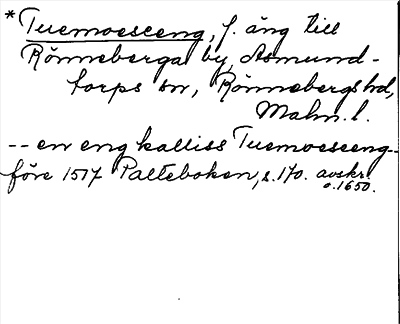 * Tuemoesceng, f. äng till
Rönneberga by, Asmund-
torps sn, Rönnebergs hd,
Malm. l.
-- en eng kalliss Tuemoesceng--
före 1517 Palteboken, s. 170. avskr.
o. 1650.